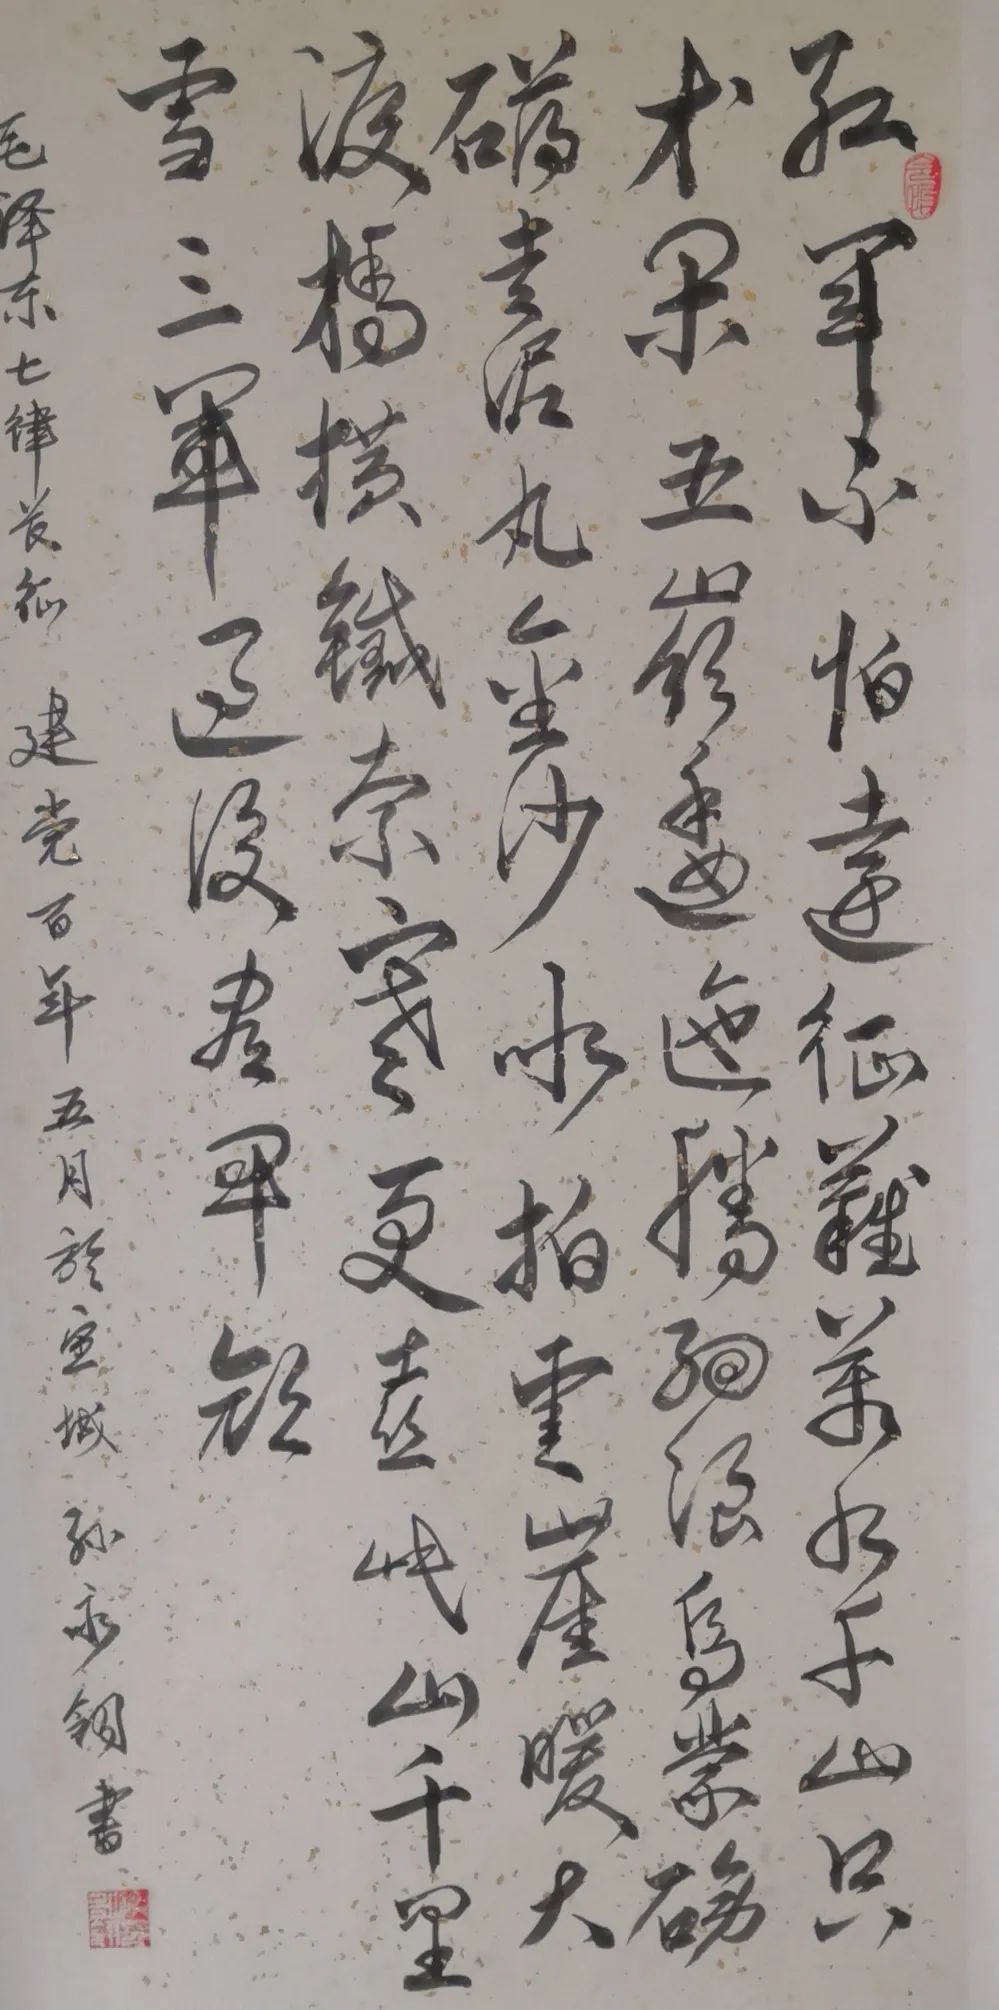 紅軍不怕遠征難萬水千山只
等閒五嶺逶迤騰細浪烏蒙磅
礴走泥丸金沙水拍雲崖暖大
渡橋橫鐵索寒更喜岷山千里
雪三軍過後盡開顏
毛泽东七律长征 建党百年五月於宣城 孙永書